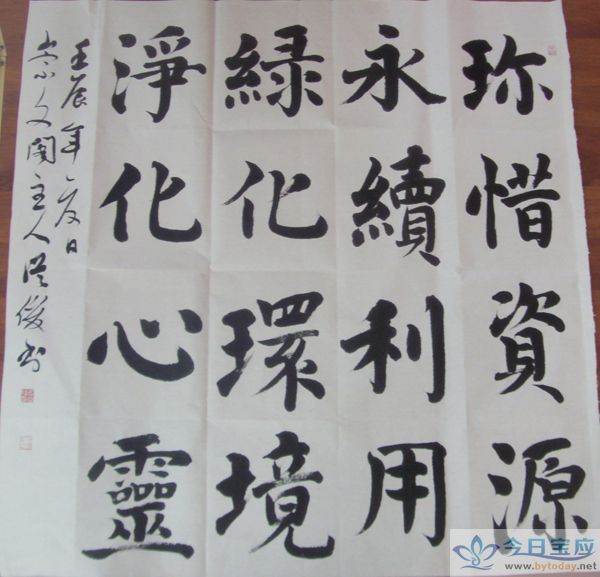 珎惜資源
永續利用
緑化環境
淨化心靈
壬辰年夏日
崇文閣主人俊书
今日宝应
www.bytoday.net